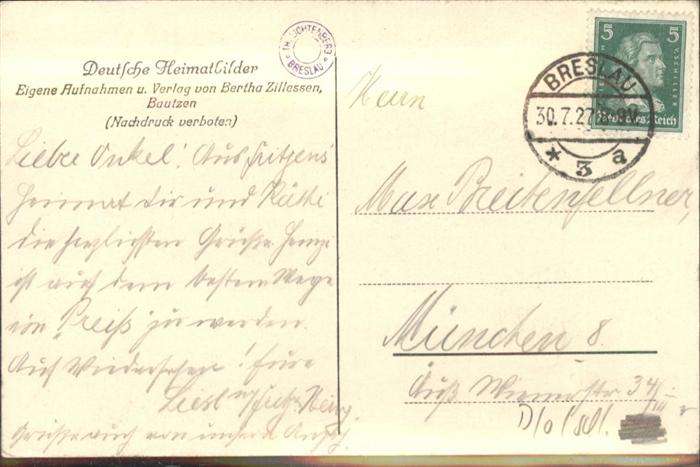 Deutsche Heimatbilder
Eigene Aufnahmen u. Verlag von Bertha Zillessen,
Bautzen
(Nachdruck verboten)
TH. LICHTENBERG
BRESLAU
5 5
Deutsches Reich
BRESLAU
30.7.27
* 3 a
Liebe Onkel! Aus Fritzens
Heimat dir und Käthi
die herzlichsten Grüße. Heinzi
ist auf dem besten Wege
ein "Preiß" zu werden.
Auf Wiedersehen! Eure
Liesl
Grüße auch von unserer
Herrn
Max Breitenfellner,
München 8.
Äuß Wienerstr. 34/III